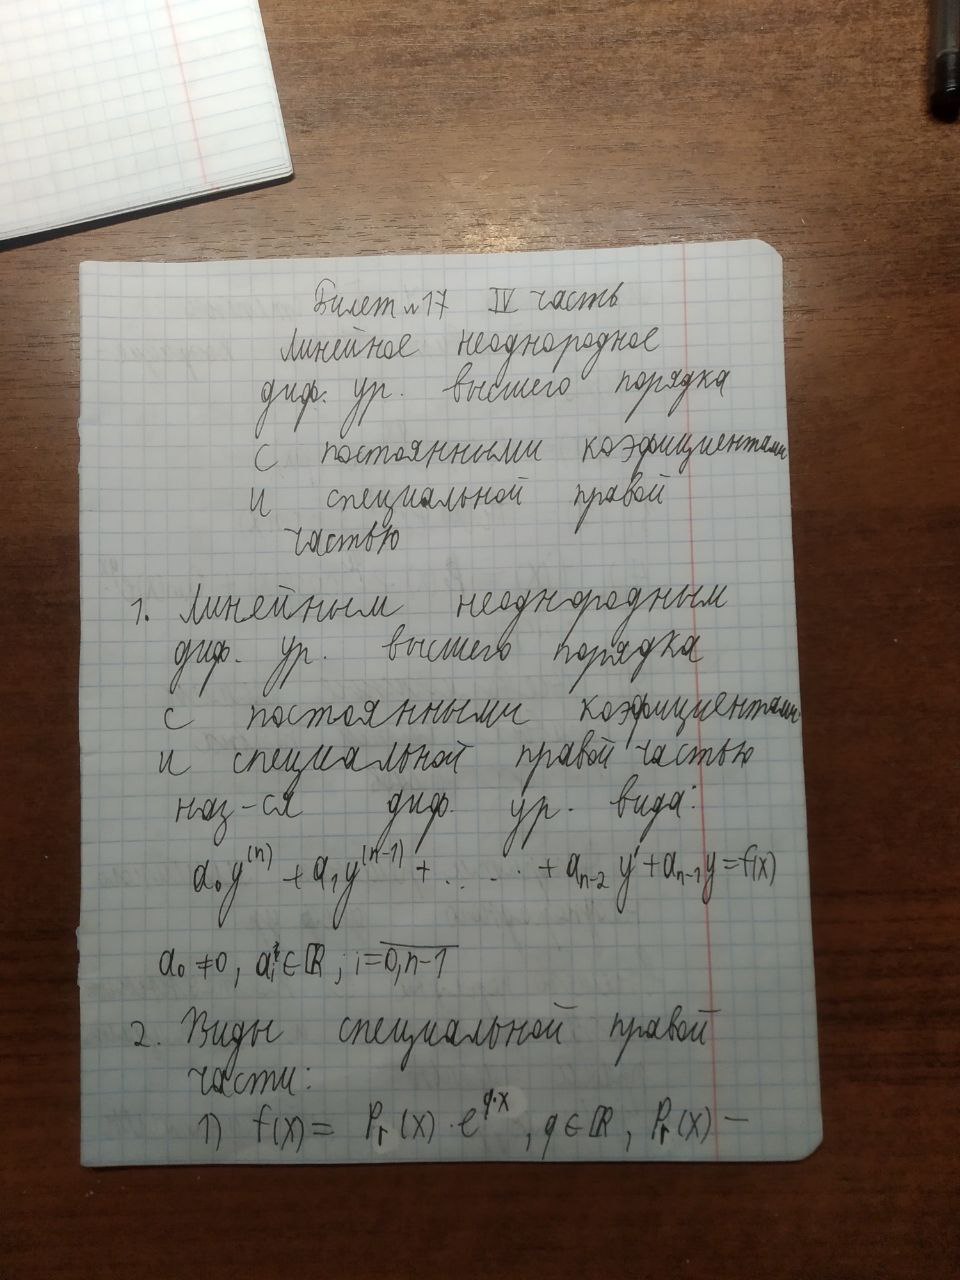 Билет №17 IV часть
Линейное неоднородное
диф. ур. высшего порядка
с постоянными коэфициентами
и специальной правой
частью
1. Линейным неоднородным
диф. ур. высшего порядка
с постоянными коэфициентами
и специальной правой частью
наз-ся диф. ур. вида:
a₀y⁽ⁿ⁾ + a₁y⁽ⁿ⁻¹⁾ + . . . . + aₙ₋₂ y' + aₙ₋₁y = f(x)
a₀ ≠ 0, aᵢ ∈ ℝ, i = 0,n-1
2. Виды специальной правой
части:
1) f(x) = Pᵣ(x) · e^(q·x), q ∈ ℝ, Pᵣ(x) —